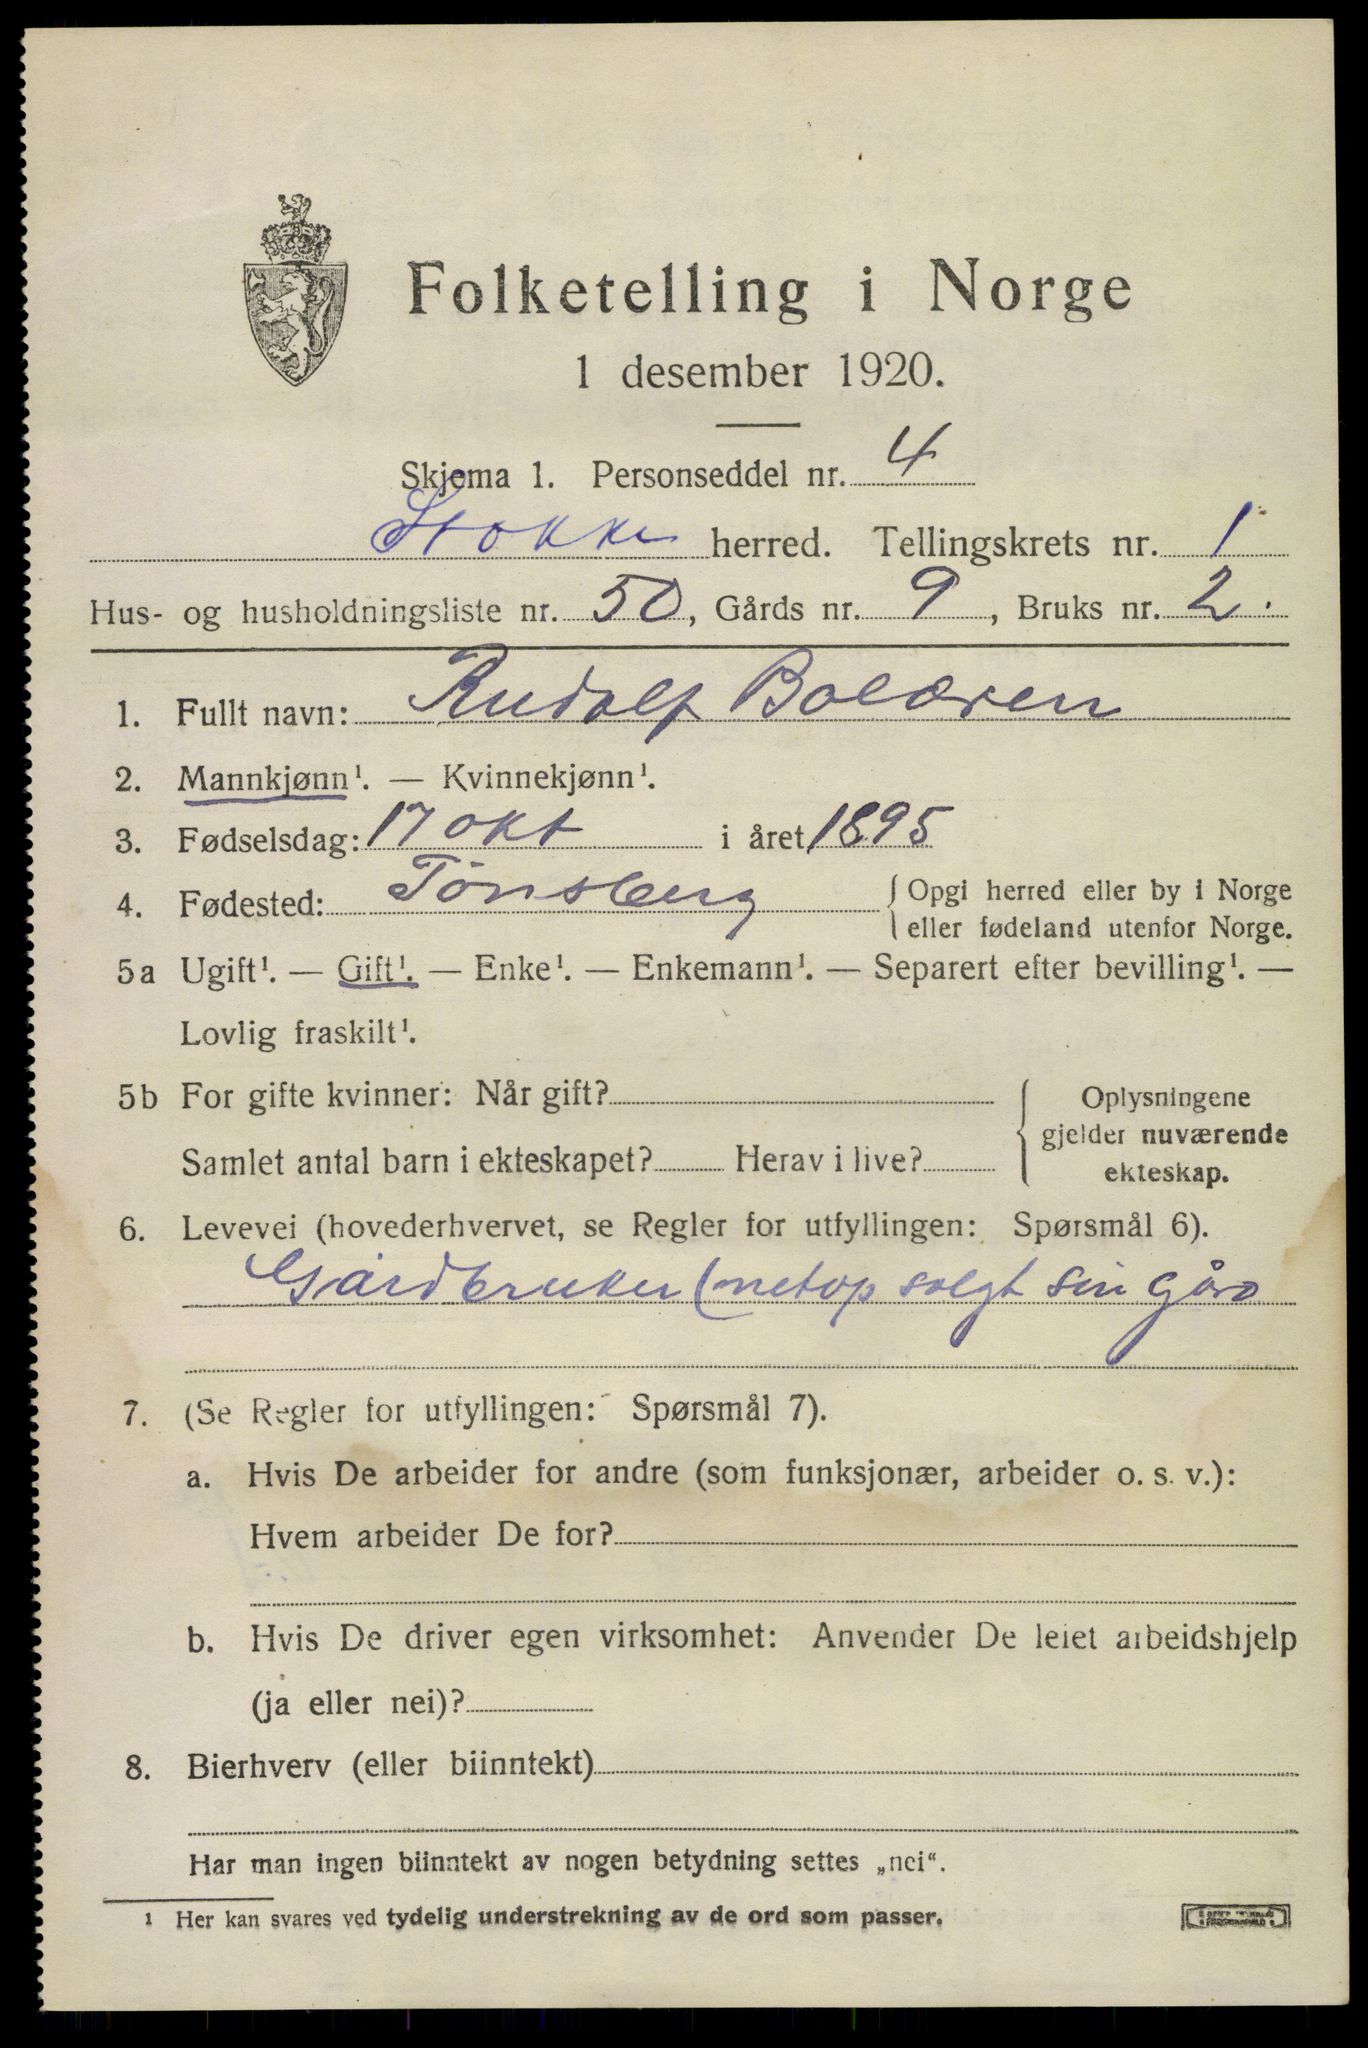 Folketelling i Norge
1 desember 1920.
Skjema 1. Personseddel nr. 4
Stokke herred. Tellingskrets nr. 1
Hus- og husholdningsliste nr. 50, Gårds nr. 9, Bruks nr. 2.
1. Fullt navn: Rudolf Bolæren
2. Mannkjønn¹. — Kvinnekjønn¹.
3. Fødselsdag: 17 okt i året 1895
4. Fødested: Tönsberg { Opgi herred eller by i Norge
eller fødeland utenfor Norge.
5a Ugift¹. — Gift¹. — Enke¹. — Enkemann¹. — Separert efter bevilling¹. —
Lovlig fraskilt¹.
5b For gifte kvinner: Når gift?
Samlet antal barn i ekteskapet? Herav i live?
{ Oplysningene
gjelder nuværende
ekteskap.
6. Levevei (hovederhvervet, se Regler for utfyllingen: Spørsmål 6).
Gårdbruker (netop solgt sin gård
7. (Se Regler for utfyllingen: Spørsmål 7).
a. Hvis De arbeider for andre (som funksjonær, arbeider o. s. v.):
Hvem arbeider De for?
b. Hvis De driver egen virksomhet: Anvender De leiet arbeidshjelp
(ja eller nei)?
8. Bierhverv (eller biinntekt)
Har man ingen biinntekt av nogen betydning settes „nei“.
1 Her kan svares ved tydelig understrekning av de ord som passer.